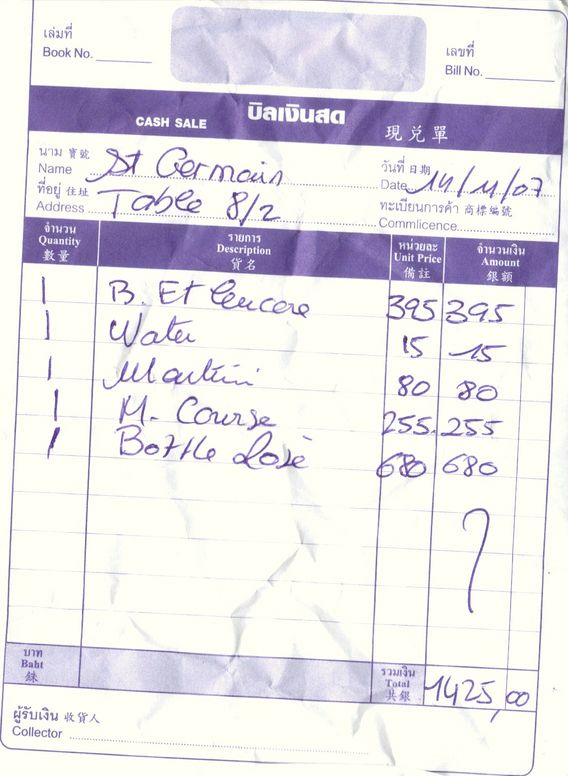 เล่มที่ เลขที่
Book No. Bill No.
CASH SALE บิลเงินสด 現兑單
นาม 寶號 วันที่ 日期
Name St Germain Date 14/11/07
ที่อยู่ 住址 ทะเบียนการค้า 商標編號
Address Table 8/2 Commlicence.
จำนวน รายการ หน่วยละ จำนวนเงิน
Quantity Description Unit Price Amount
數量 貨名 備註 銀額
1 B. Et Encore 395 395
1 Water 15 15
1 Martini 80 80
1 M. Course 255. 255
1 Bottle Rosè 680 680
บาท รวมเงิน
Baht Total 1425,00
銖 共銀
ผู้รับเงิน 收貨人
Collector